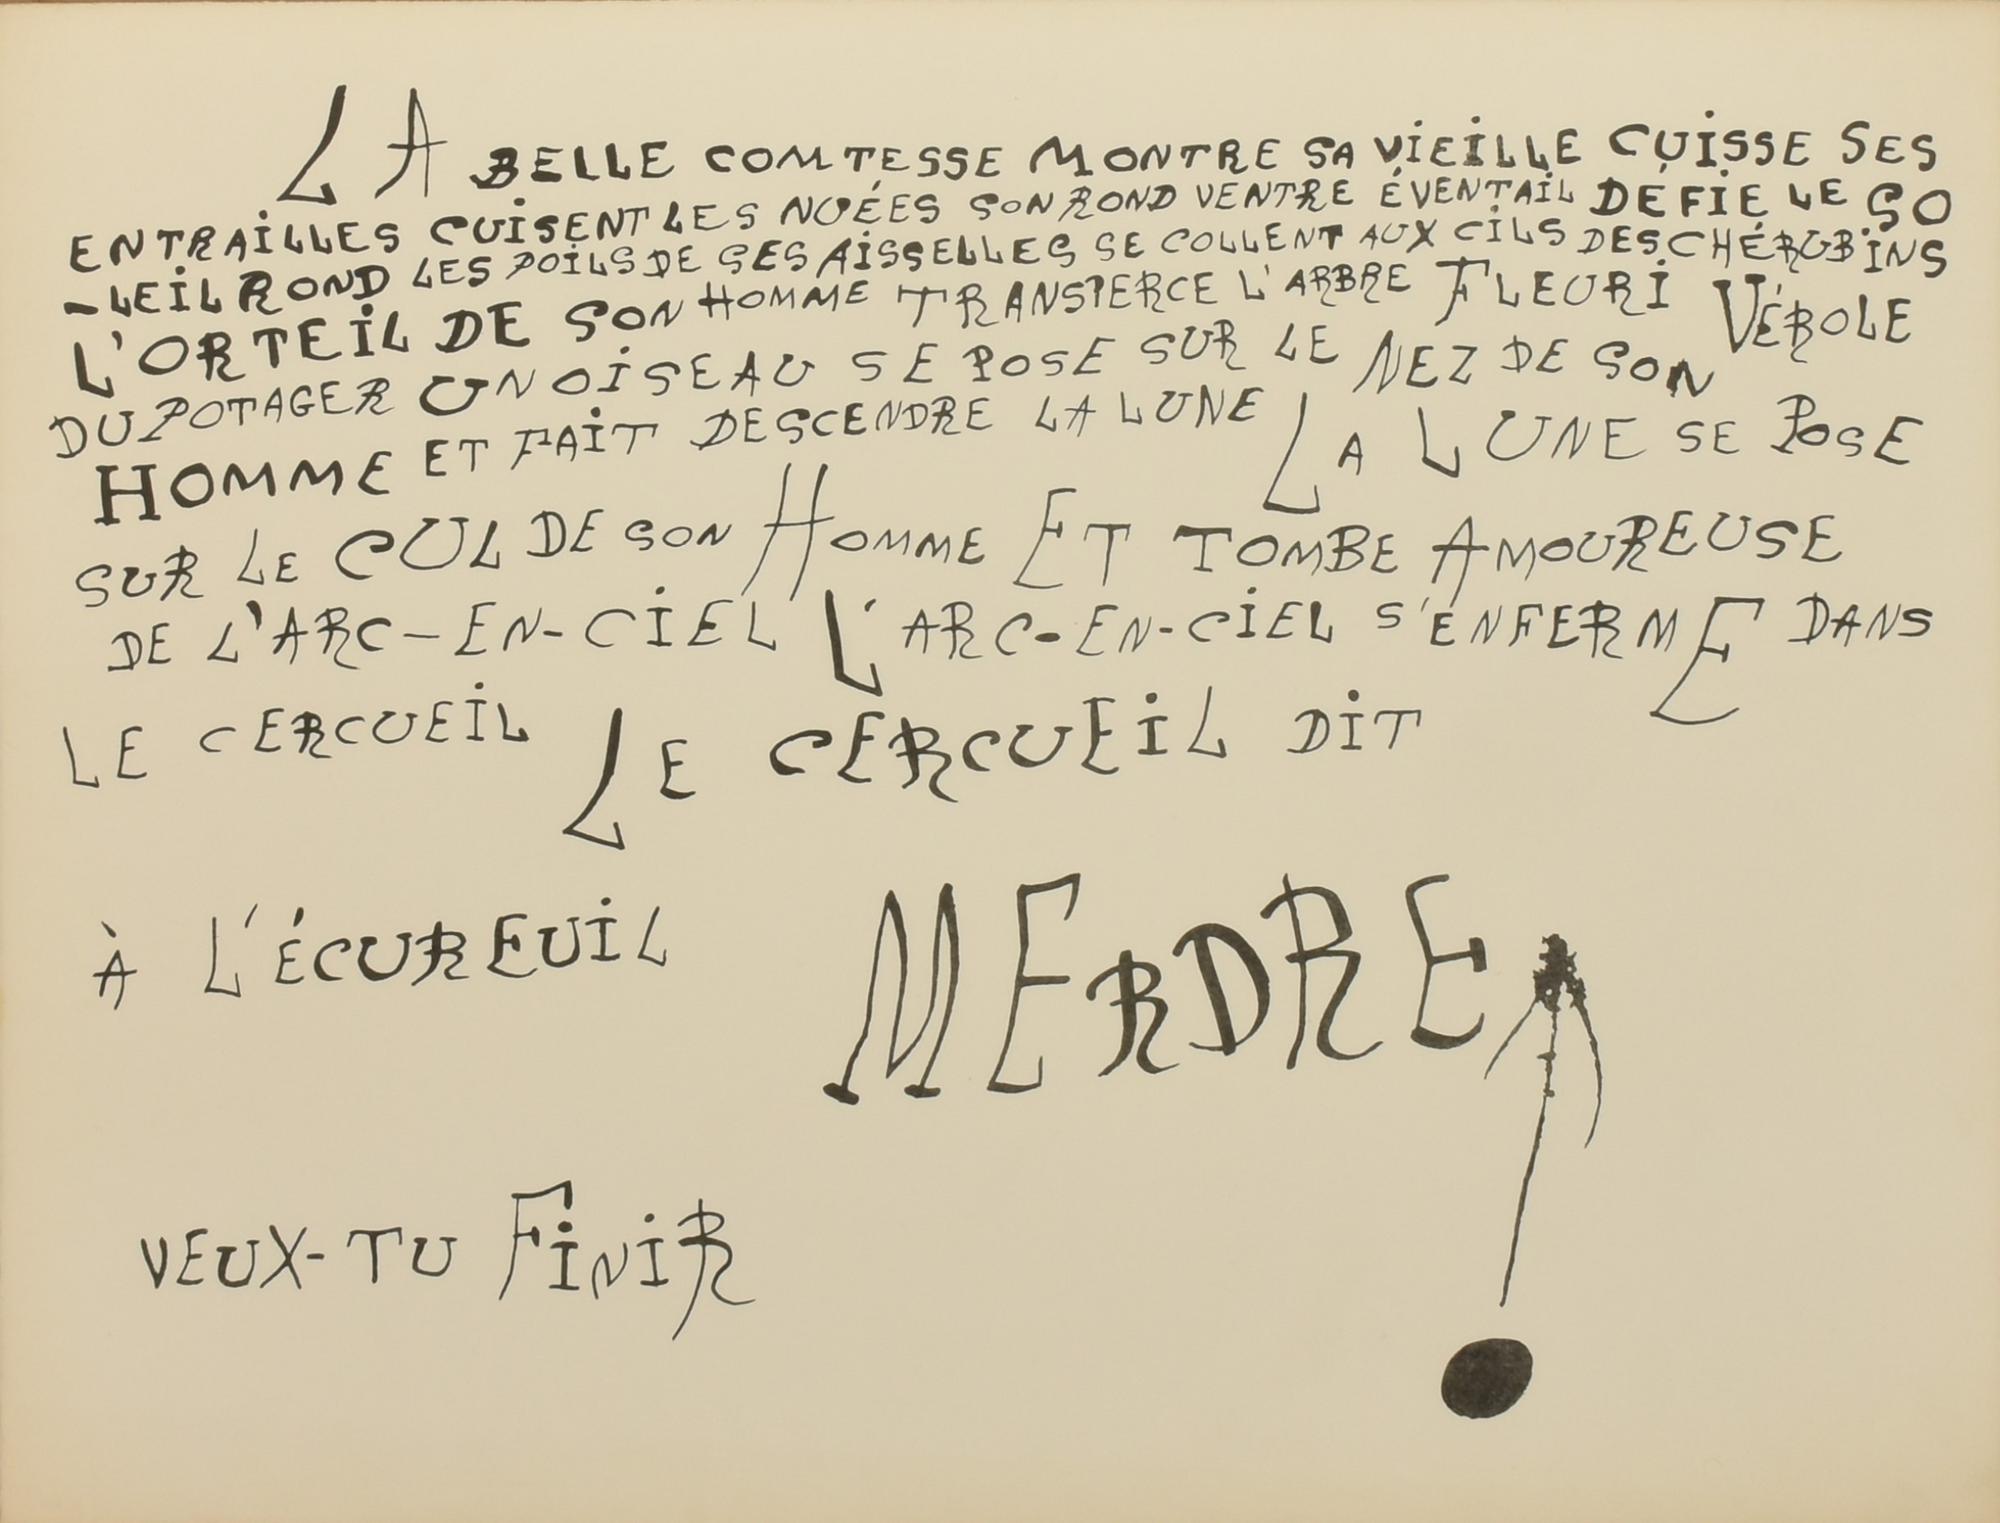 LA BELLE COMTESSE MONTRE SA VIEILLE CUISSE SES
ENTRAILLES CUISENT LES NUÉES SON ROND VENTRE ÉVENTAIL DÉFIE LE SO
-LEIL ROND LES POILS DE SES AISSELLES SE COLLENT AUX CILS DES CHÉRUBINS
L'ORTEIL DE SON HOMME TRANSPERCE L'ARBRE FLEURI VÉROLE
DU POTAGER UN OISEAU SE POSE SUR LE NEZ DE SON
HOMME ET FAIT DESCENDRE LA LUNE LA LUNE SE POSE
SUR LE CUL DE SON HOMME ET TOMBE AMOUREUSE
DE L'ARC-EN-CIEL L'ARC-EN-CIEL S'ENFERME DANS
LE CERCUEIL LE CERCUEIL DIT
À L'ÉCUREUIL MERDRE
VEUX-TU FINIR